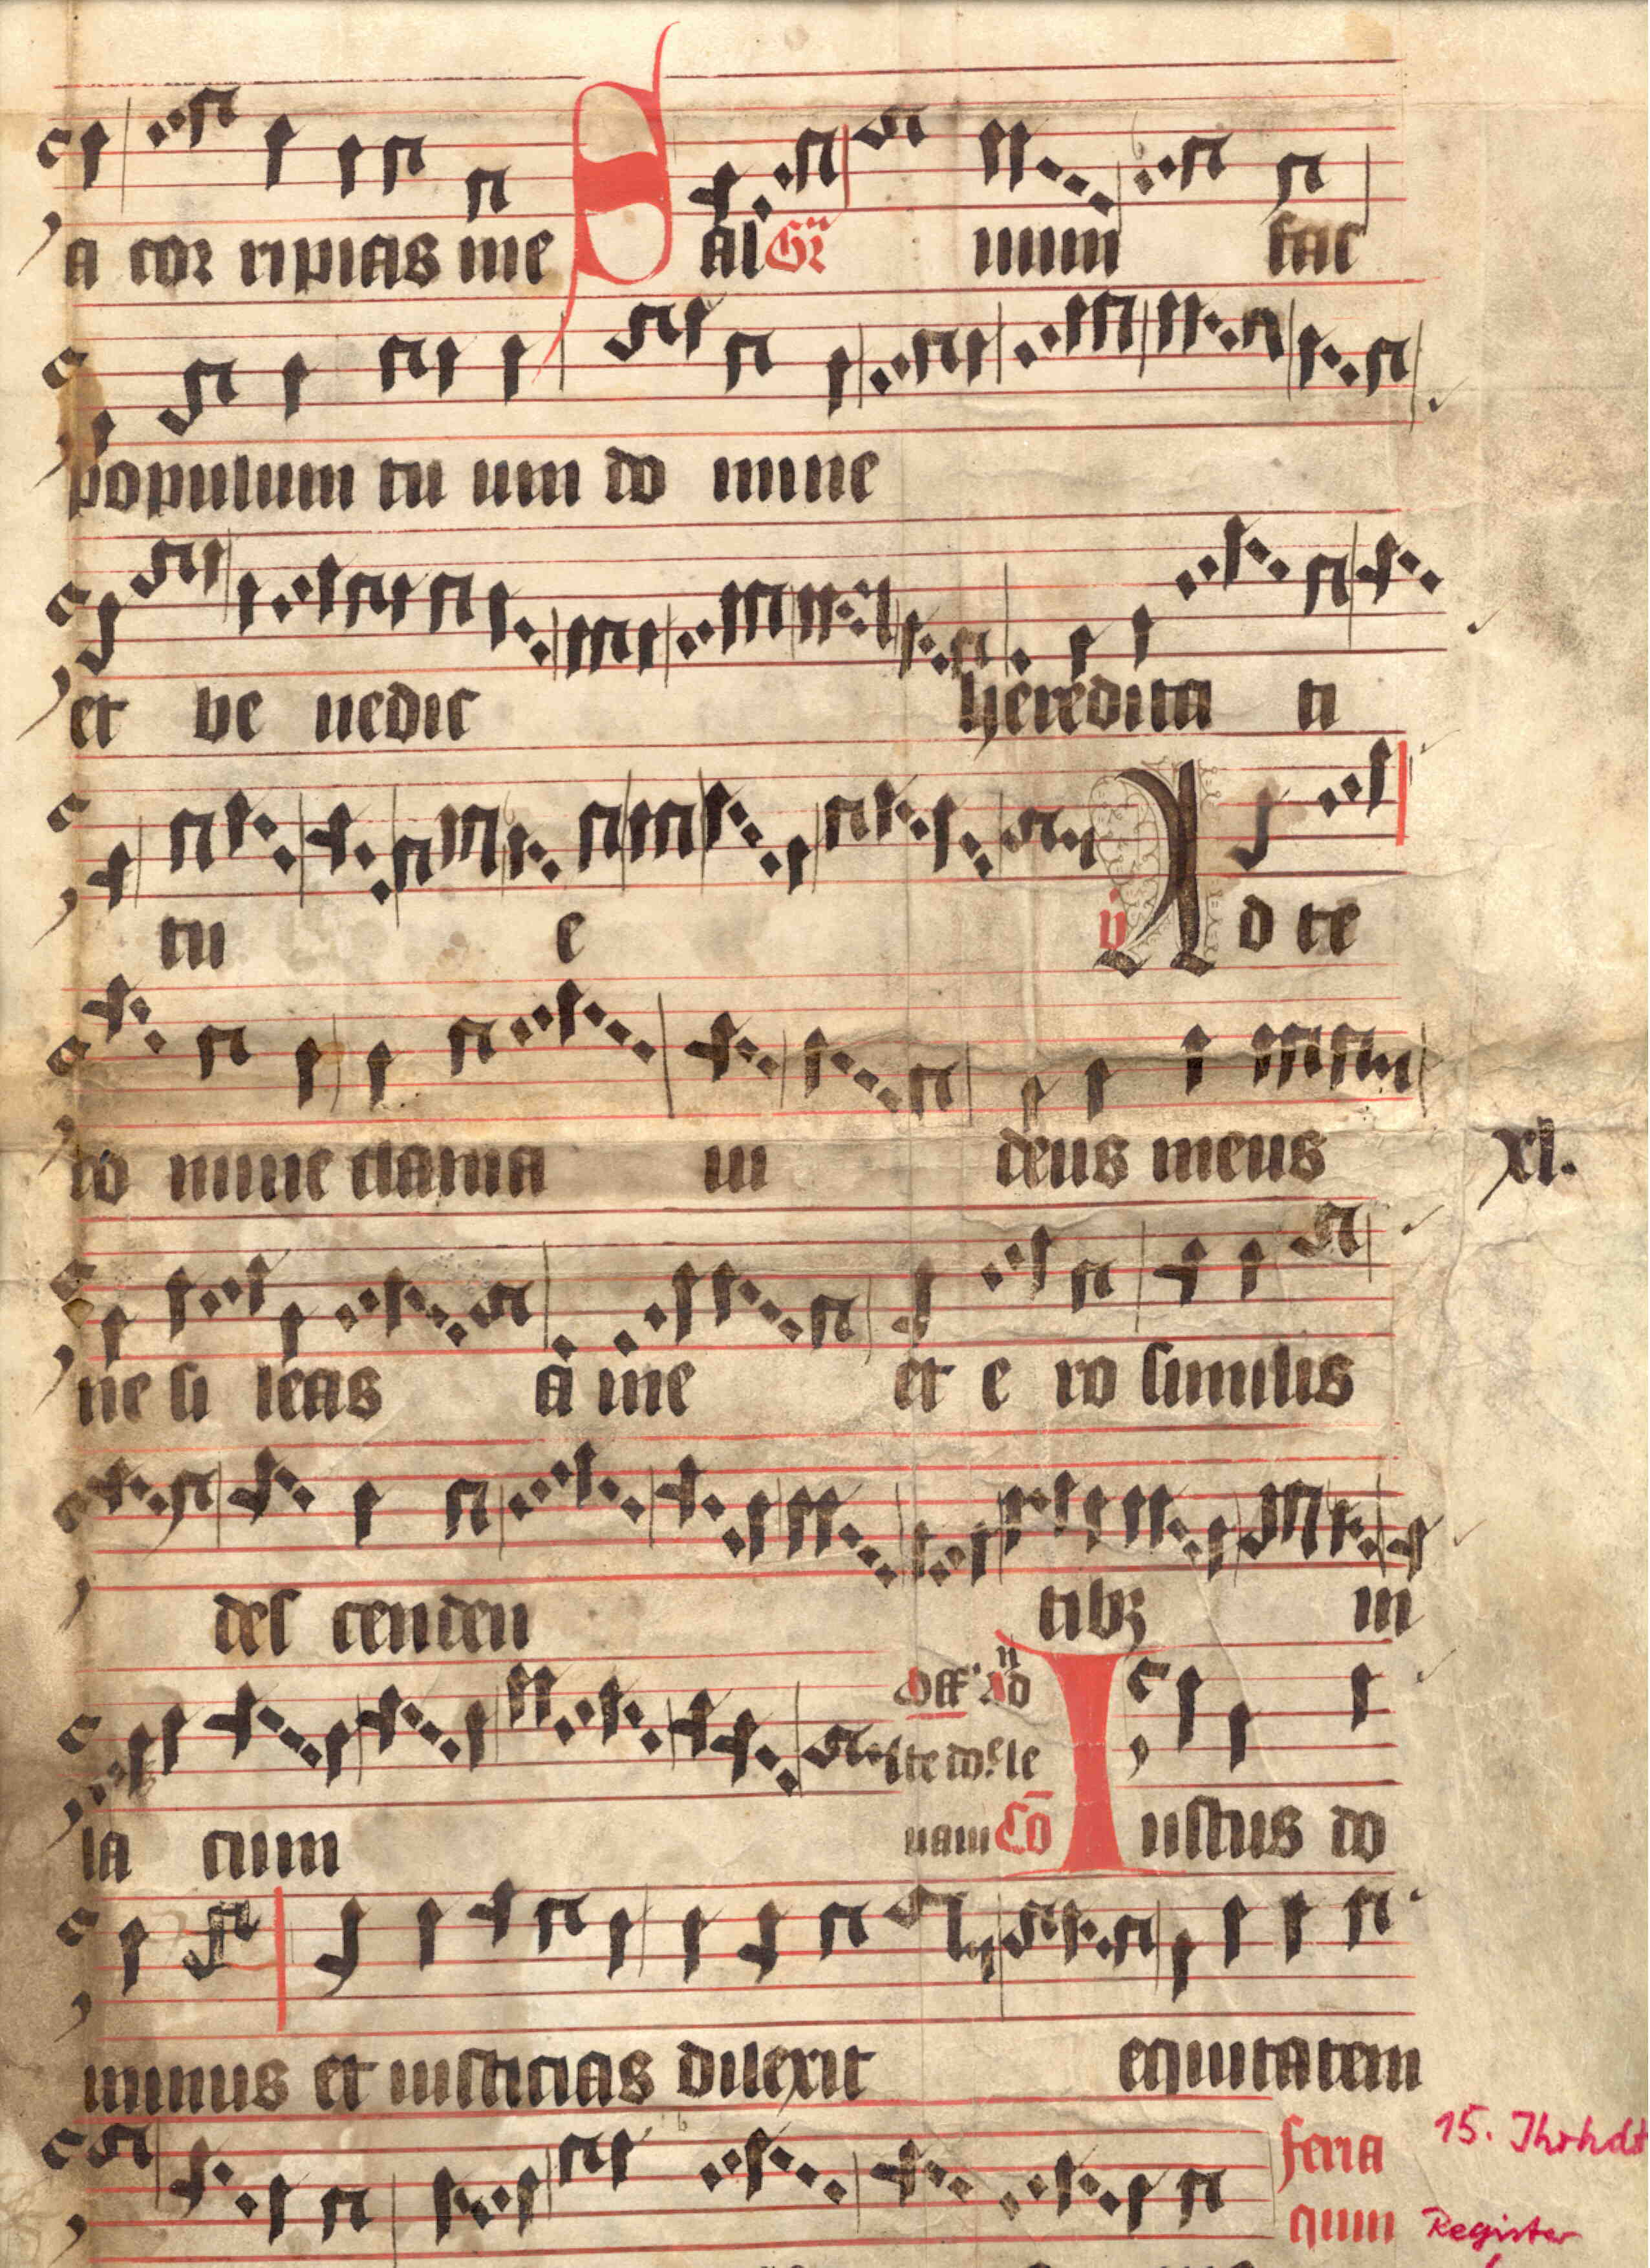 a cor ripias me Sal Gr̄ uum fac
populum tu um do mine
et be nedic heredita ti
tu e v̇ Ad te
do mine clama ui deus meus
xl.
ne si leas a me et e ro similis
des cenden tibꝫ in
la cum
Off' Ad
te do. le
uaui Cō Iustus do
minus et iusticias dilexit equitatem
feria
quin
15. Jhrhdt
Register